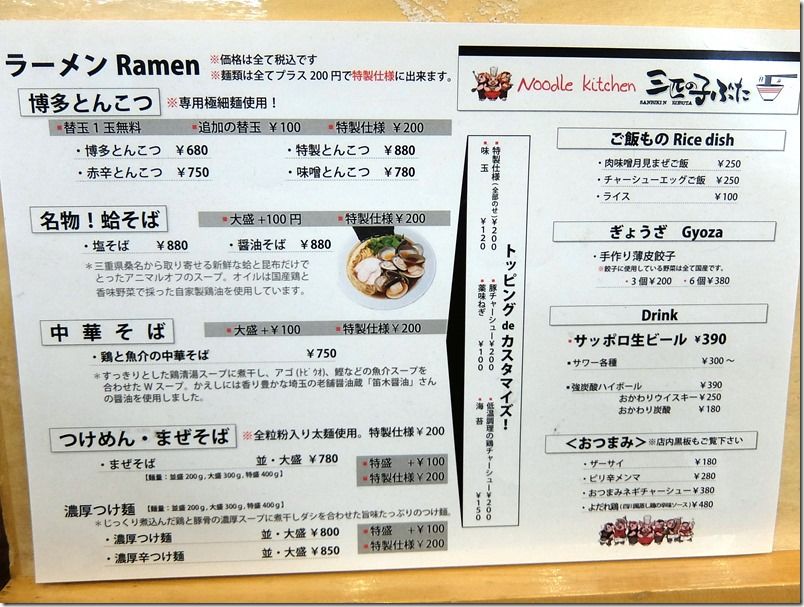 ラーメン Ramen
※価格は全て税込です
※麺類は全てプラス200円で特製仕様に出来ます。
博多とんこつ ※専用極細麺使用！
▪替玉1玉無料 ▪追加の替玉 ¥100 ▪特製仕様 ¥200
・博多とんこつ ¥680 ・特製とんこつ ¥880
・赤辛とんこつ ¥750 ・味噌とんこつ ¥780
名物！蛤そば ▪大盛+100円 ▪特製仕様¥200
・塩そば ¥880 ・醤油そば ¥880
＊三重県桑名から取り寄せる新鮮な蛤と昆布だけで
とったアニマルオフのスープ。オイルは国産鶏と
香味野菜で採った自家製鶏油を使用しています。
中華そば ▪大盛+¥100 ▪特製仕様¥200
・鶏と魚介の中華そば ¥750
＊すっきりとした鶏清湯スープに煮干し、アゴ(ﾄﾋﾞｳｵ)、鰹などの魚介スープを
合わせたWスープ。かえしには香り豊かな埼玉の老舗醤油蔵「笛木醤油」さん
の醤油を使用しました。
つけめん・まぜそば ※全粒粉入り太麺使用。特製仕様¥200
・まぜそば 並・大盛 ¥780
【麺量：並盛200g, 大盛300g, 特盛400g】
▪特盛 +¥100
▪特製仕様¥200
濃厚つけ麺 【麺量：並盛200g, 大盛300g, 特盛400g】
＊じっくり煮込んだ鶏と豚骨の濃厚スープに煮干しダシを合わせた旨味たっぷりのつけ麺。
・濃厚つけ麺 並・大盛 ¥800
・濃厚辛つけ麺 並・大盛 ¥850
▪特盛 +¥100
▪特製仕様¥200
トッピング de カスタマイズ！
▪特製仕様(全部のせ)¥200
▪味玉 ¥120
▪豚チャーシュー¥200
▪薬味ねぎ ¥100
▪低温調理の鶏チャーシュー¥200
▪海苔 ¥150
Noodle kitchen 三匹の子ぶた
SANBIKI N KOBUTA
ご飯もの Rice dish
・肉味噌月見まぜご飯 ¥250
・チャーシューエッグご飯 ¥250
・ライス ¥100
ぎょうざ Gyoza
・手作り薄皮餃子
※餃子に使用している野菜は全て国産です。
・3個¥200 ・6個¥380
Drink
▪サッポロ生ビール ¥390
▪サワー各種 ¥300～
▪強炭酸ハイボール ¥390
おかわりウイスキー¥250
おかわり炭酸 ¥180
＜おつまみ＞※店内黒板もご覧下さい
・ザーサイ ¥180
・ピリ辛メンマ ¥280
・おつまみネギチャーシュー¥380
・よだれ鶏(四川風蒸し鶏の辛味ソース)¥480